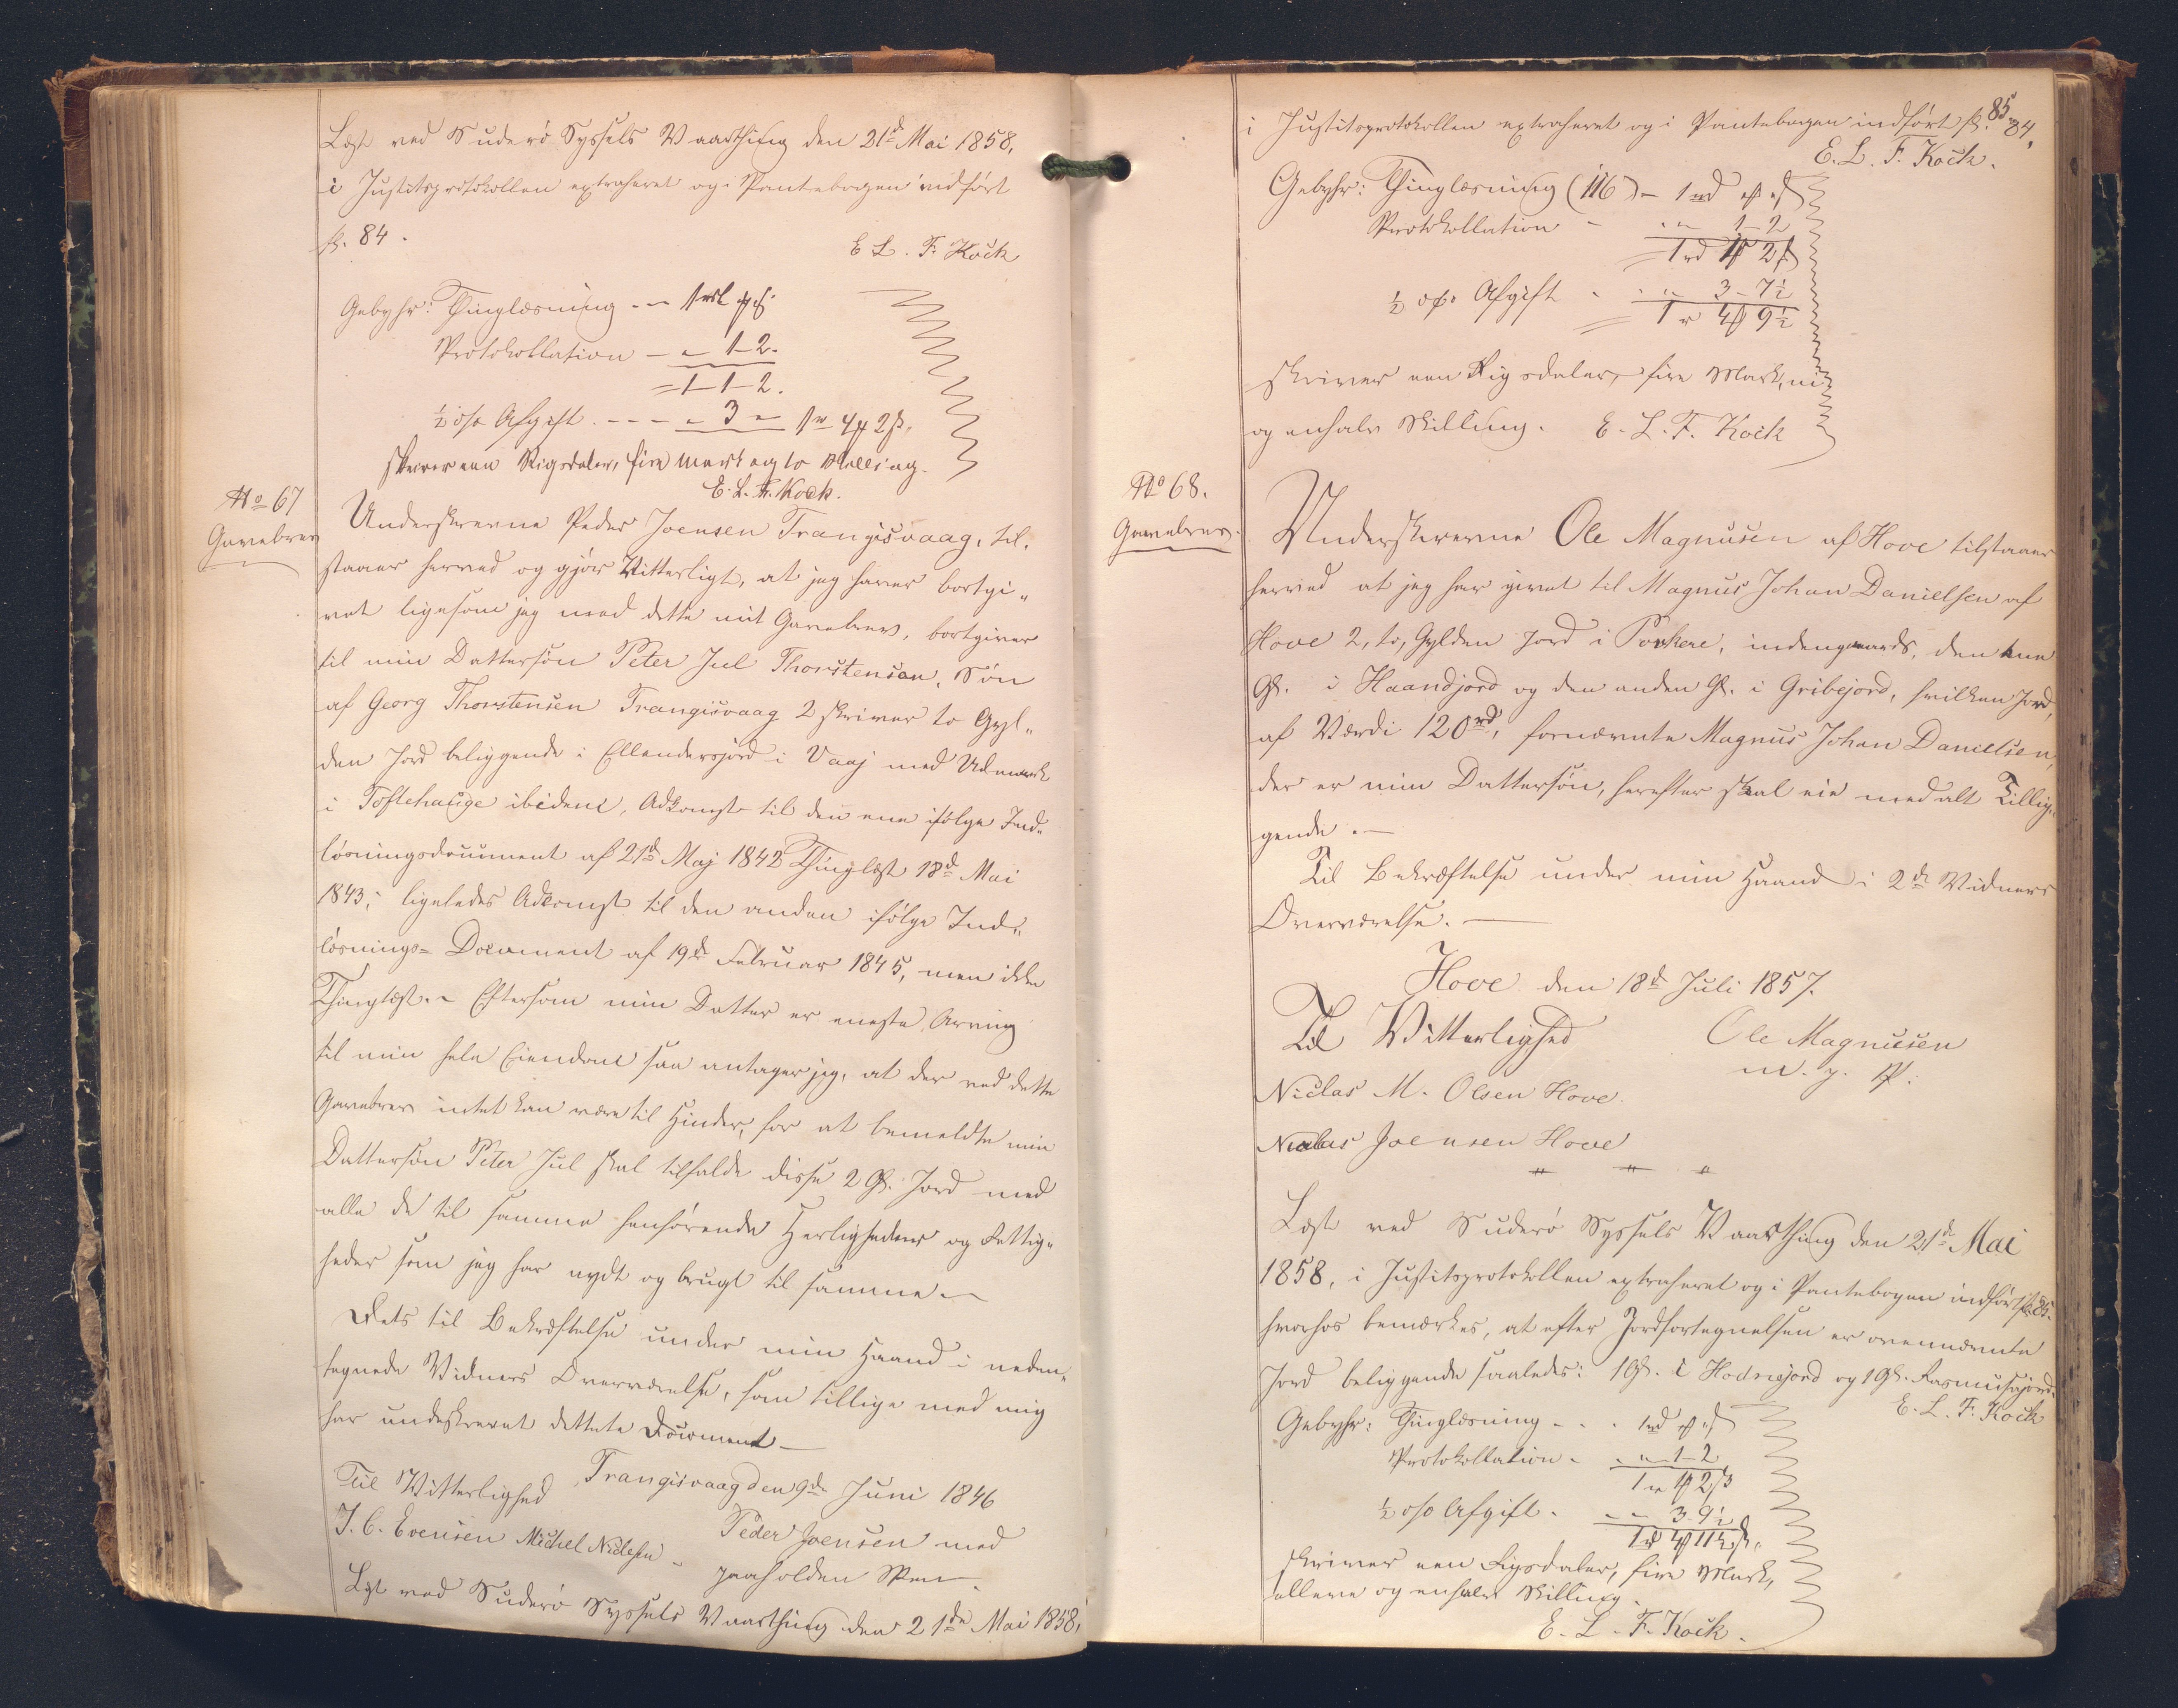 Læst ved Suderø Syssels Vaarthing den 21d Mai 1858,
i Justitsprotokollen extraheret og i Pantebogen indført
fol. 84.
E. L. F. Kock
Gebyhr: Thinglæsning - - 1 rd
Protokollation - - 1-2.
= 1-1-2.
½ o/o Afgift - - - - 3 - 1 r 4 2 s.
skriver een Rigsdaler, fire Mark og to Skilling.
E. L. F. Kock.
No 67
Gavebrev
Underskrevne Peder Joensen Trangisvaag, til-
staaer herved og gjør Vitterligt, at jeg haver bortgi-
vet ligesom jeg med dette mit Gavebrev, bortgiver
til min Dattersøn Peter Jul Thorstensen, Søn
af Georg Thorstensen Trangisvaag 2 skriver to Gyl-
den Jord beliggende i Ellendersjord i Vaaj med Udmark
i Toftehauge ibidem. Adkomst til den ene ifølge Ind-
løsningsdocument af 21d Maj 1842 Thinglæst 18d Mai
1843; ligeledes Adkomst til den anden ifølge Ind-
løsnings-Document af 19de Februar 1845, men ikke
Thinglæst. - Eftersom min Datter er eneste Arving
til min hele Eiendom saa antager jeg, at der ved dette
Gavebrev intet kan være til Hinder, for at bemeldte min
Dattersøn Peter Jul skal tilfalde disse 2 Gl. Jord med
alle de til samme henhørende Herligheder og Rettig-
heder som jeg har nydt og brugt til samme -
Dets til Bekræftelse under min Haand i neden-
tegnede Vidners Overværelse, som tillige med mig
har underskrevet dettete Document -
Trangisvaag den 9de Juni 1846
Til Vitterlighed
Peder Joensen med
J. C. Evensen Michel Niclesen -
paaholden Pen -
Læst ved Suderø Syssels Vaarthing den 21de Mai 1858,
85
84.
i Justitsprotokollen extraheret og i Pantebogen indført fol.
E. L. F. Kock.
Gebyhr: Thinglæsning (116) - 1 rd
Protokollation - " 1-2
1 rd 1 2 s
½ o/o Afgift - " 3-7½
1 r 4 9½
skriver een Rigsdaler, fire Mark, ni
og enhalv Skilling. E. L. F. Kock
No 68.
Gavebrev.
Underskrevne Ole Magnusen af Hove tilstaaer
herved at jeg har givet til Magnus Johan Danielsen af
Hove 2, to, Gylden Jord i Porkere, indengaards, den ene
Gl. i Haandjord og den anden Gl. i Gribejord, hvilken Jord,
af Værdi 120 rd, fornævnte Magnus Johan Danielsen,
der er min Dattersøn, herefter skal eie med alt Tillig-
gende. -
Til Bekræftelse under min Haand i 2de Vidners
Overværelse. -
Hove den 18d Juli 1857.
Til Vitterlighed
Ole Magnusen
m. f. P:
Niclas M. Olsen Hove
Niclas Joensen Hove
Læst ved Suderø Syssels Vaarthing den 21de Mai
1858, i Justitsprotokollen extraheret og i Pantebogen indført fol. 85.
hvorhos bemærkes, at efter Jordfortegnelsen er ovennævnte
Jord beliggende saaledes: 1 Gl. i Hodnejord og 1 Gl. Rasmusajord.
E. L. F. Kock
Gebyhr: Thinglæsning - . . 1 rd
Protokollation - " 1-2
1 r 1 2 s
½ o/o Afgift - - - 3 9½
1 rd 4 11½ s.
skriver een Rigsdaler, fire Mark,
elleve og enhalv Skilling.
E. L. F. Kock.